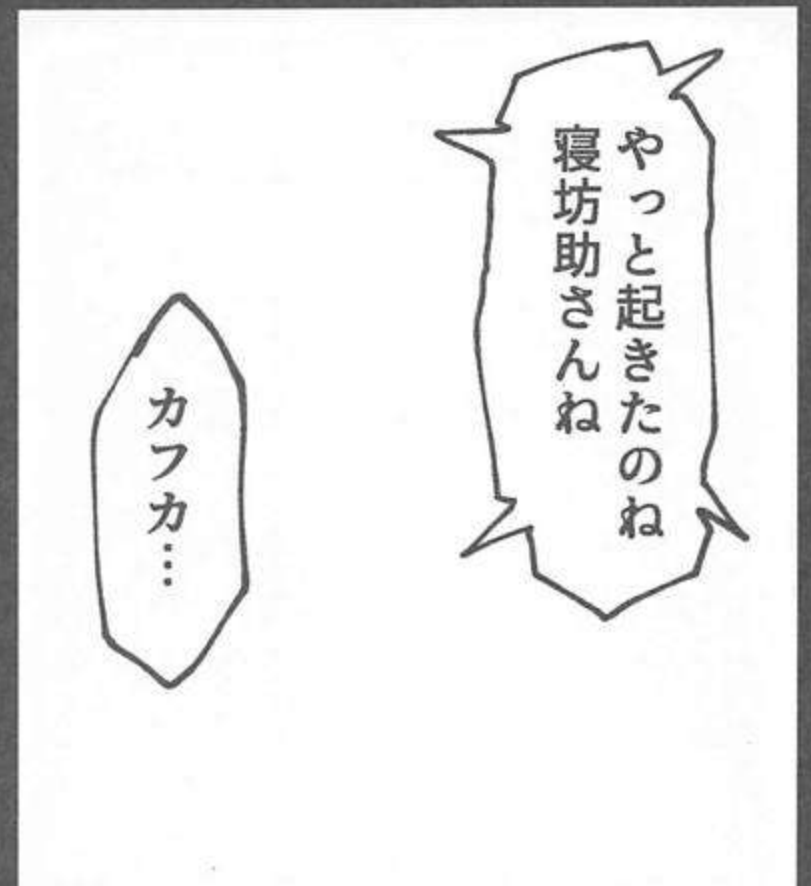 やっと起きたのね
寝坊助さんね
カフカ…